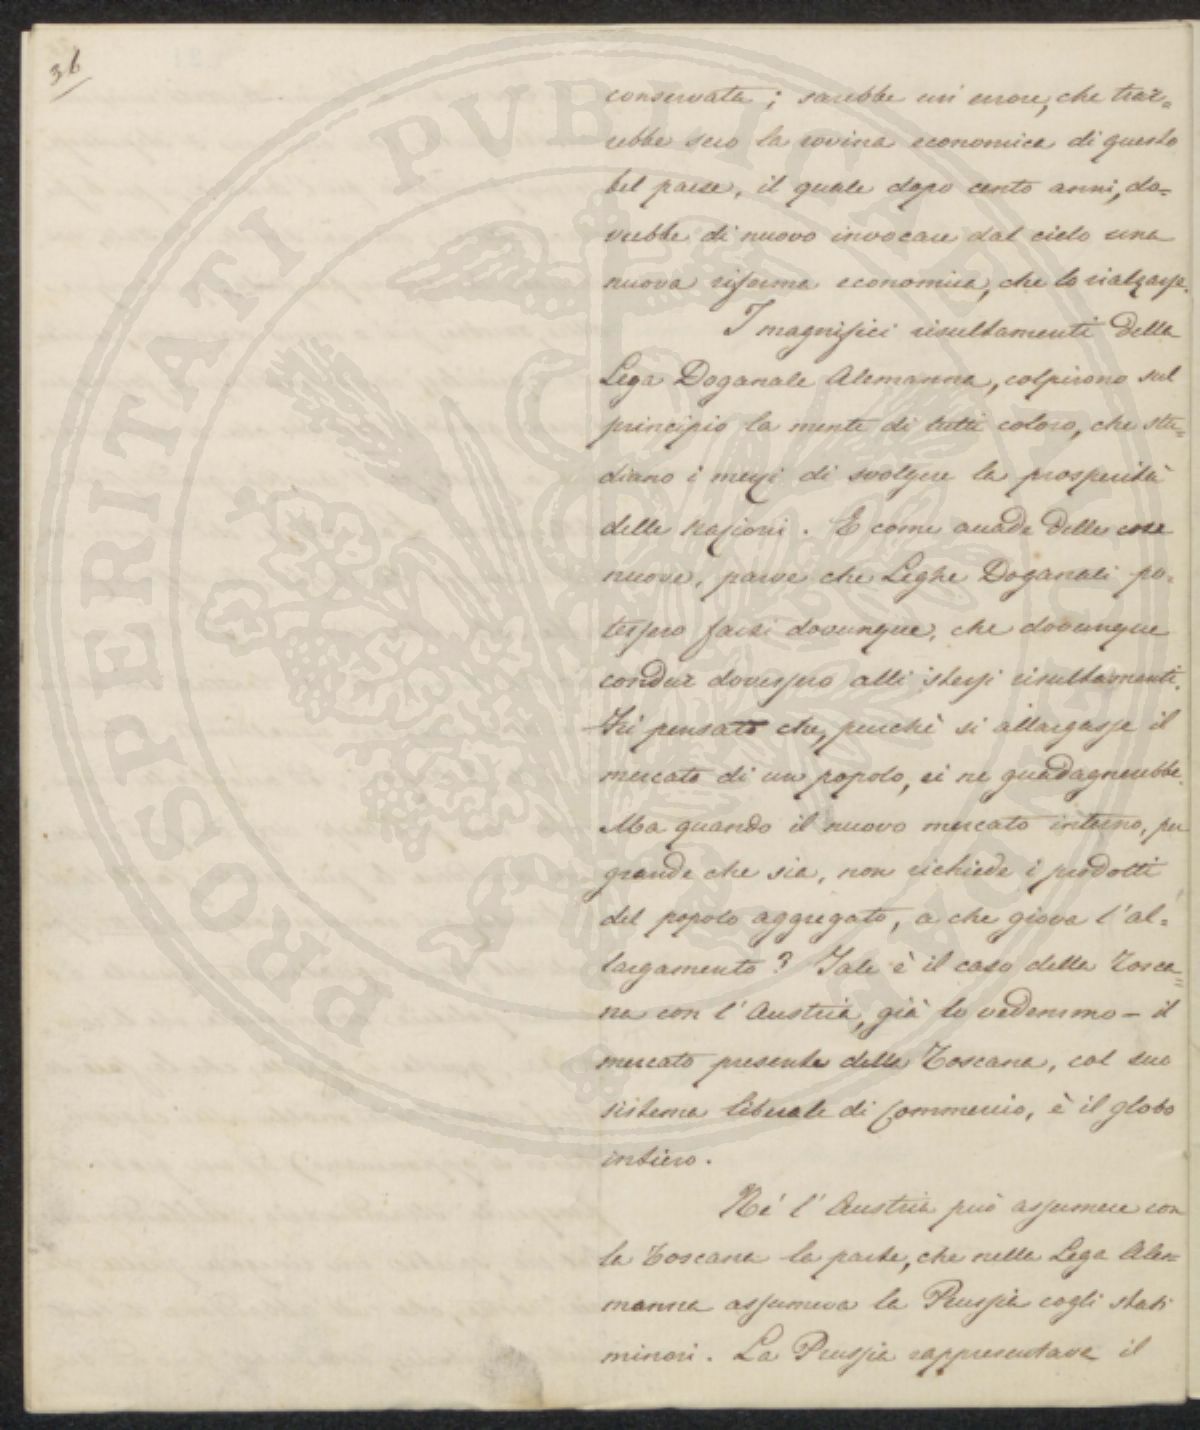 36
conservata; sarebbe un' errore, che trar=
rebbe seco la rovina economica di questo
bel paese, il quale dopo cento anni, do=
vrebbe di nuovo invocare dal cielo una
nuova riforma economica, che lo rialzasse.
I magnifici risultamenti della
Lega Doganale Alemanna, colpirono sul
principio la mente di tutti coloro, che stu=
diano i mezzi di svolgere la prosperità
delle Nazioni. E come accade delle cose
nuove, parve che Leghe Doganali po=
tessero farsi dovunque, che dovunque
condur dovessero alli stessi risultamenti.
Fu pensato che, purchè si allargasse il
mercato di un popolo, ei ne guadagnerebbe.
Ma quando il nuovo mercato interno, per
grande che sia, non richiede i prodotti
del popolo aggregato, a che giova l'al=
largamento? Tale è il caso della Tosca=
na con l'Austria, già lo vedemmo — il
mercato presente della Toscana, col suo
sistema liberale di Commercio, è il globo
intiero.
Nè l'Austria può assumere con
la Toscana la parte, che nella Lega Ale=
manna assumeva la Prussia cogli stati
minori. La Prussia rappresentava il
PROSPERITATI PVBLICAE AVGENDAE